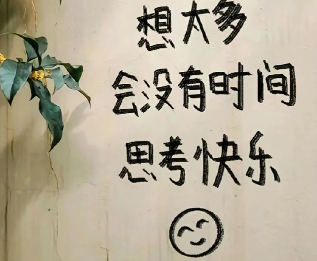 想太多
会没有时间
思考快乐